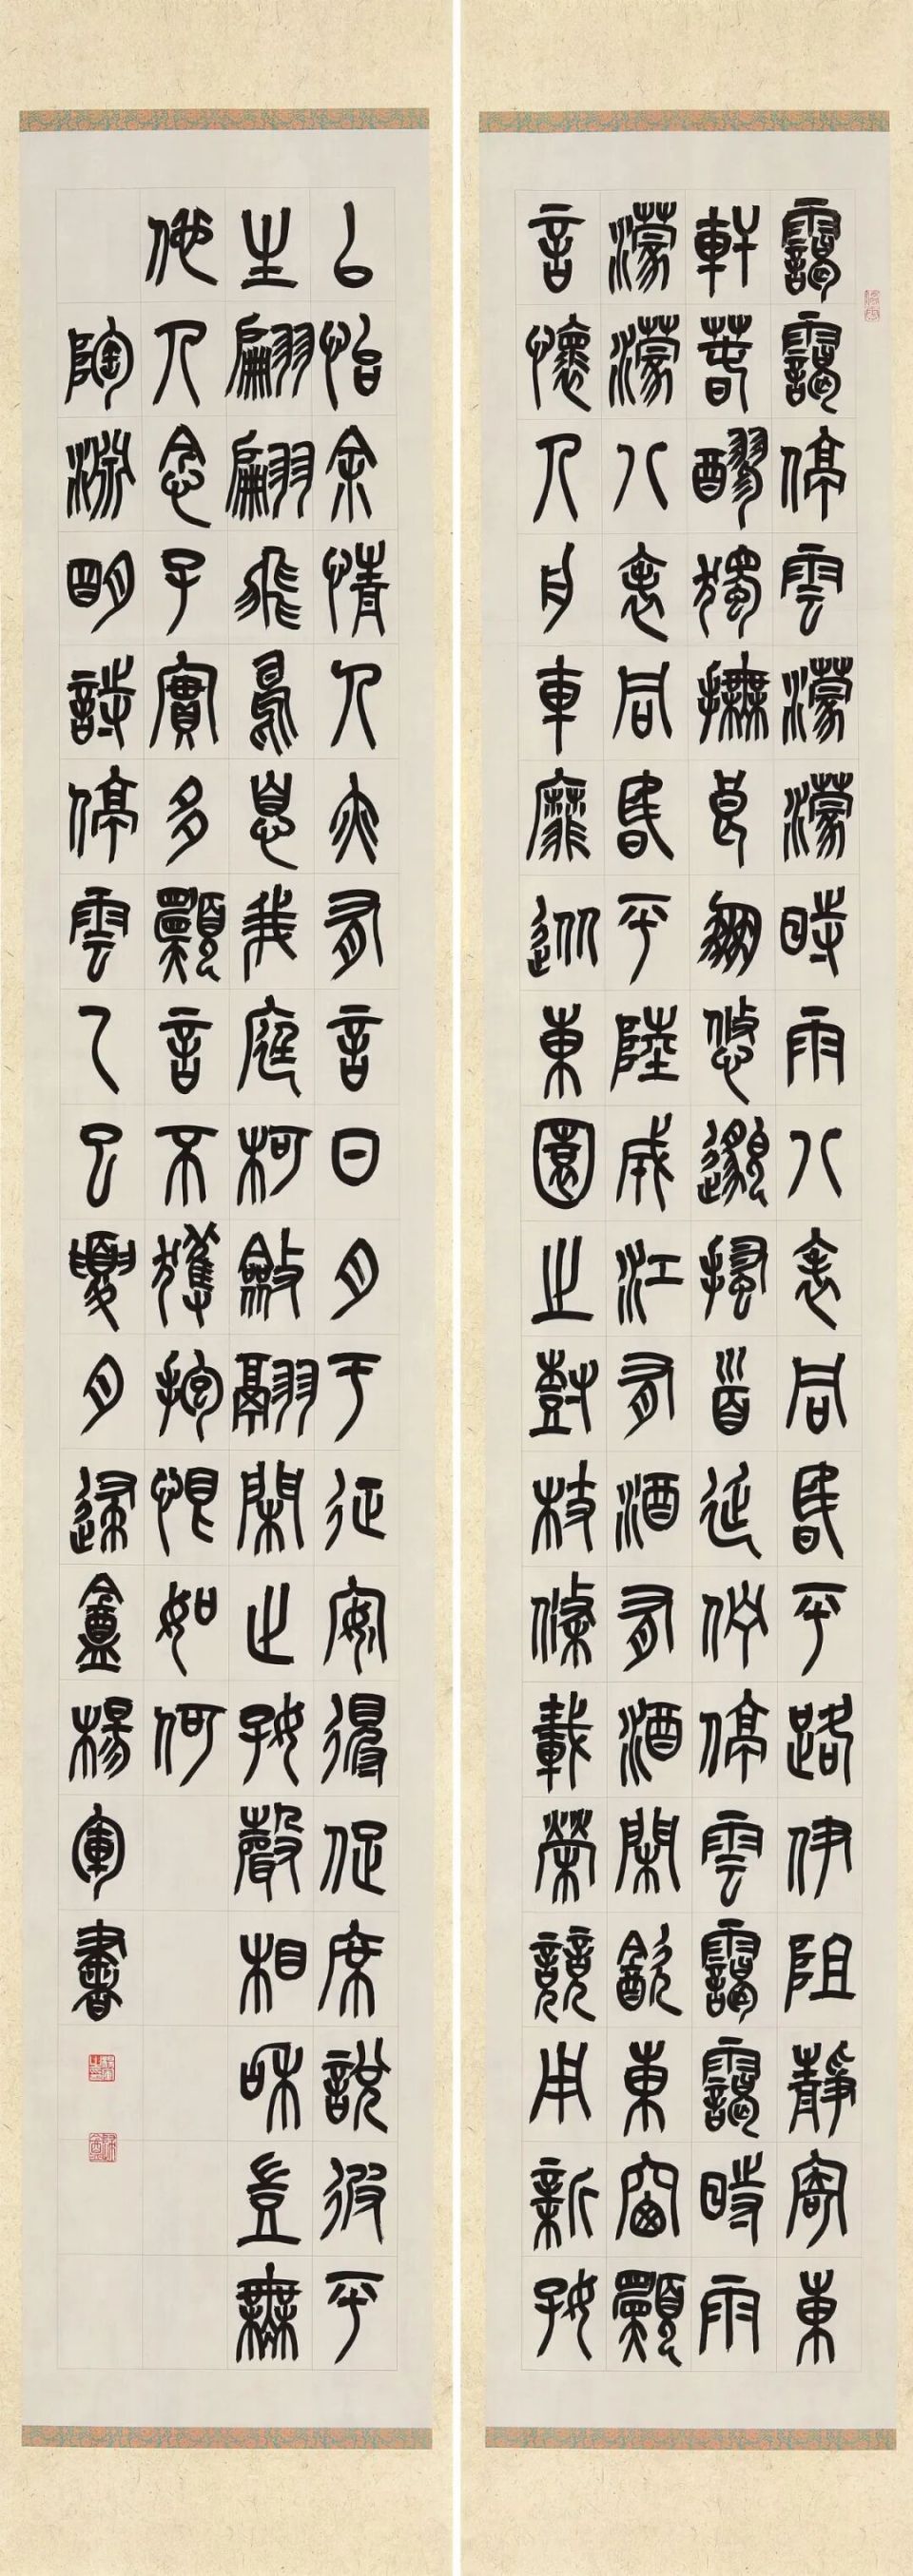 靄靄停雲濛濛時雨八表同昏平路伊阻靜寄東
軒春醪獨撫良朋悠邈搔首延佇停雲靄靄時雨
濛濛八表同昏平陸成江有酒有酒閒飲東窗願
言懷人舟車靡從東園之樹枝條載榮競用新好
以怡余情人亦有言日月于征安得促席說彼平
生翩翩飛鳥息我庭柯斂翮閒止好聲相和豈無
他人念子實多願言不獲抱恨如何
陶淵明詩停雲乙巳夏月盦楊軍書